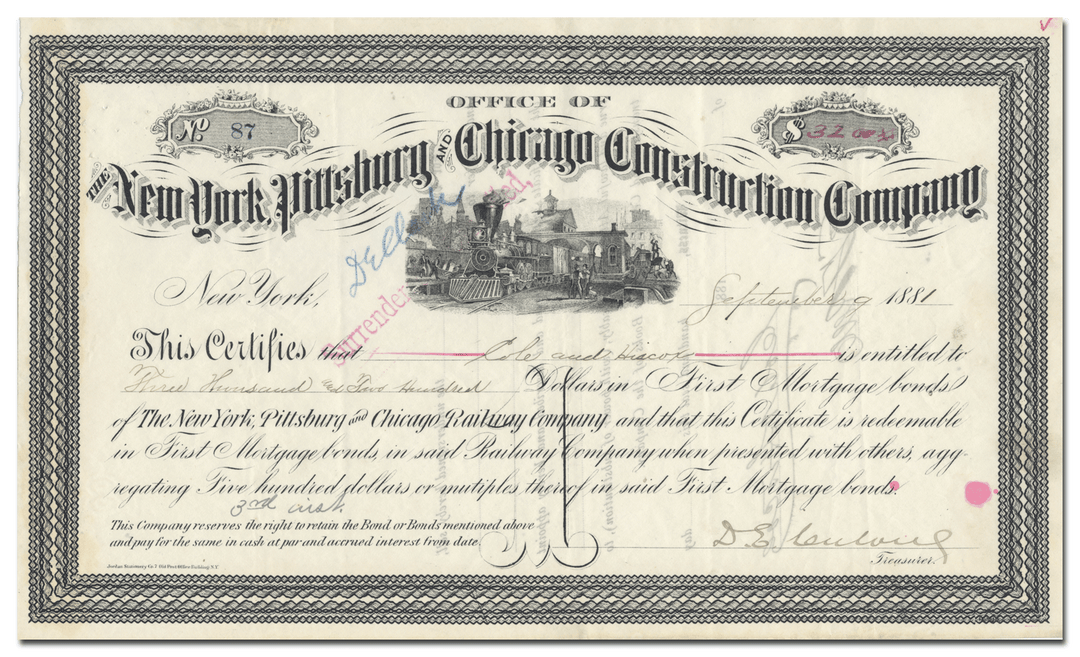 OFFICE OF
No 87
$ 3200
THE New York, Pittsburg AND Chicago Construction Company
Surrendered,
New York, September 9 1881
This Certifies that Cole and Hiscox is entitled to
Three Thousand & Two Hundred Dollars in First Mortgage bonds
of The New York, Pittsburg and Chicago Railway Company and that this Certificate is redeemable
in First Mortgage bonds, in said Railway Company when presented with others, agg-
regating Five hundred dollars or mutiples thereof in said First Mortgage bonds.
3rd inst.
This Company reserves the right to retain the Bond or Bonds mentioned above
and pay for the same in cash at par and accrued interest from date.
Treasurer.